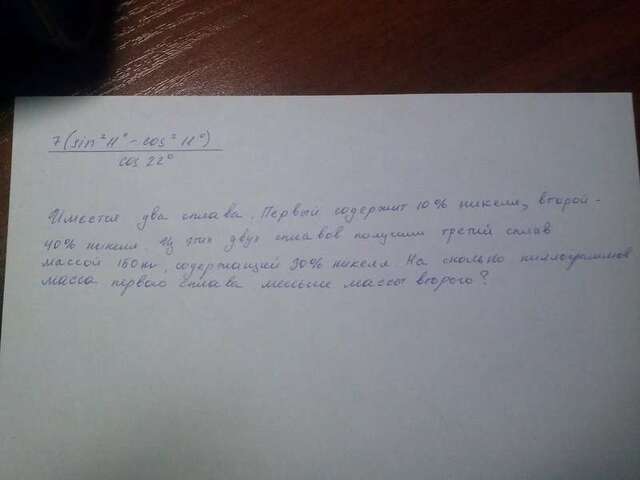 7(sin²11°-cos²11°)
cos 22°
Имеются два сплава. Первый содержит 10% никеля, второй -
40% никеля. Из этих двух сплавов получили третий сплав
массой 150кг, содержащей 30% никеля. На сколько киллограммов
масса первого сплава меньше массы второго?